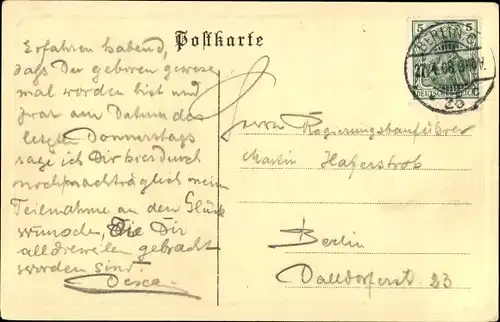 Postkarte
Erfahren habend,
dass Du geboren gewese
mal worden bist und
zwar am Datum des
letzten Donnerstags
sage ich Dir hierdurch
nochnachträglich mein
Teilnahme an den Glück
wünschen, die Dir
alldieweilen gebracht
worden sind.
5 5
BERLIN C
27.4.08
2a
Herrn Regierungsbauführer
Martin Haferstroh
Berlin
Dalldorferst 23